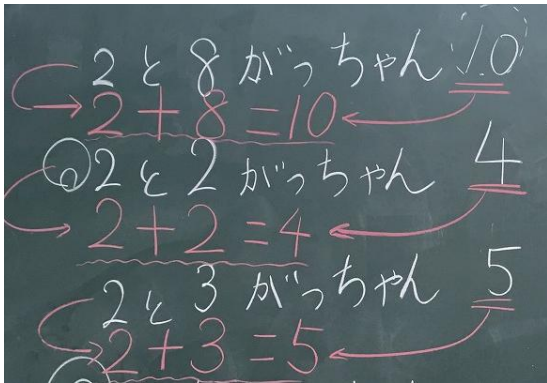 2と8がっちゃん10
2+8=10
2と2がっちゃん 4
2+2=4
2と3がっちゃん 5
2+3=5